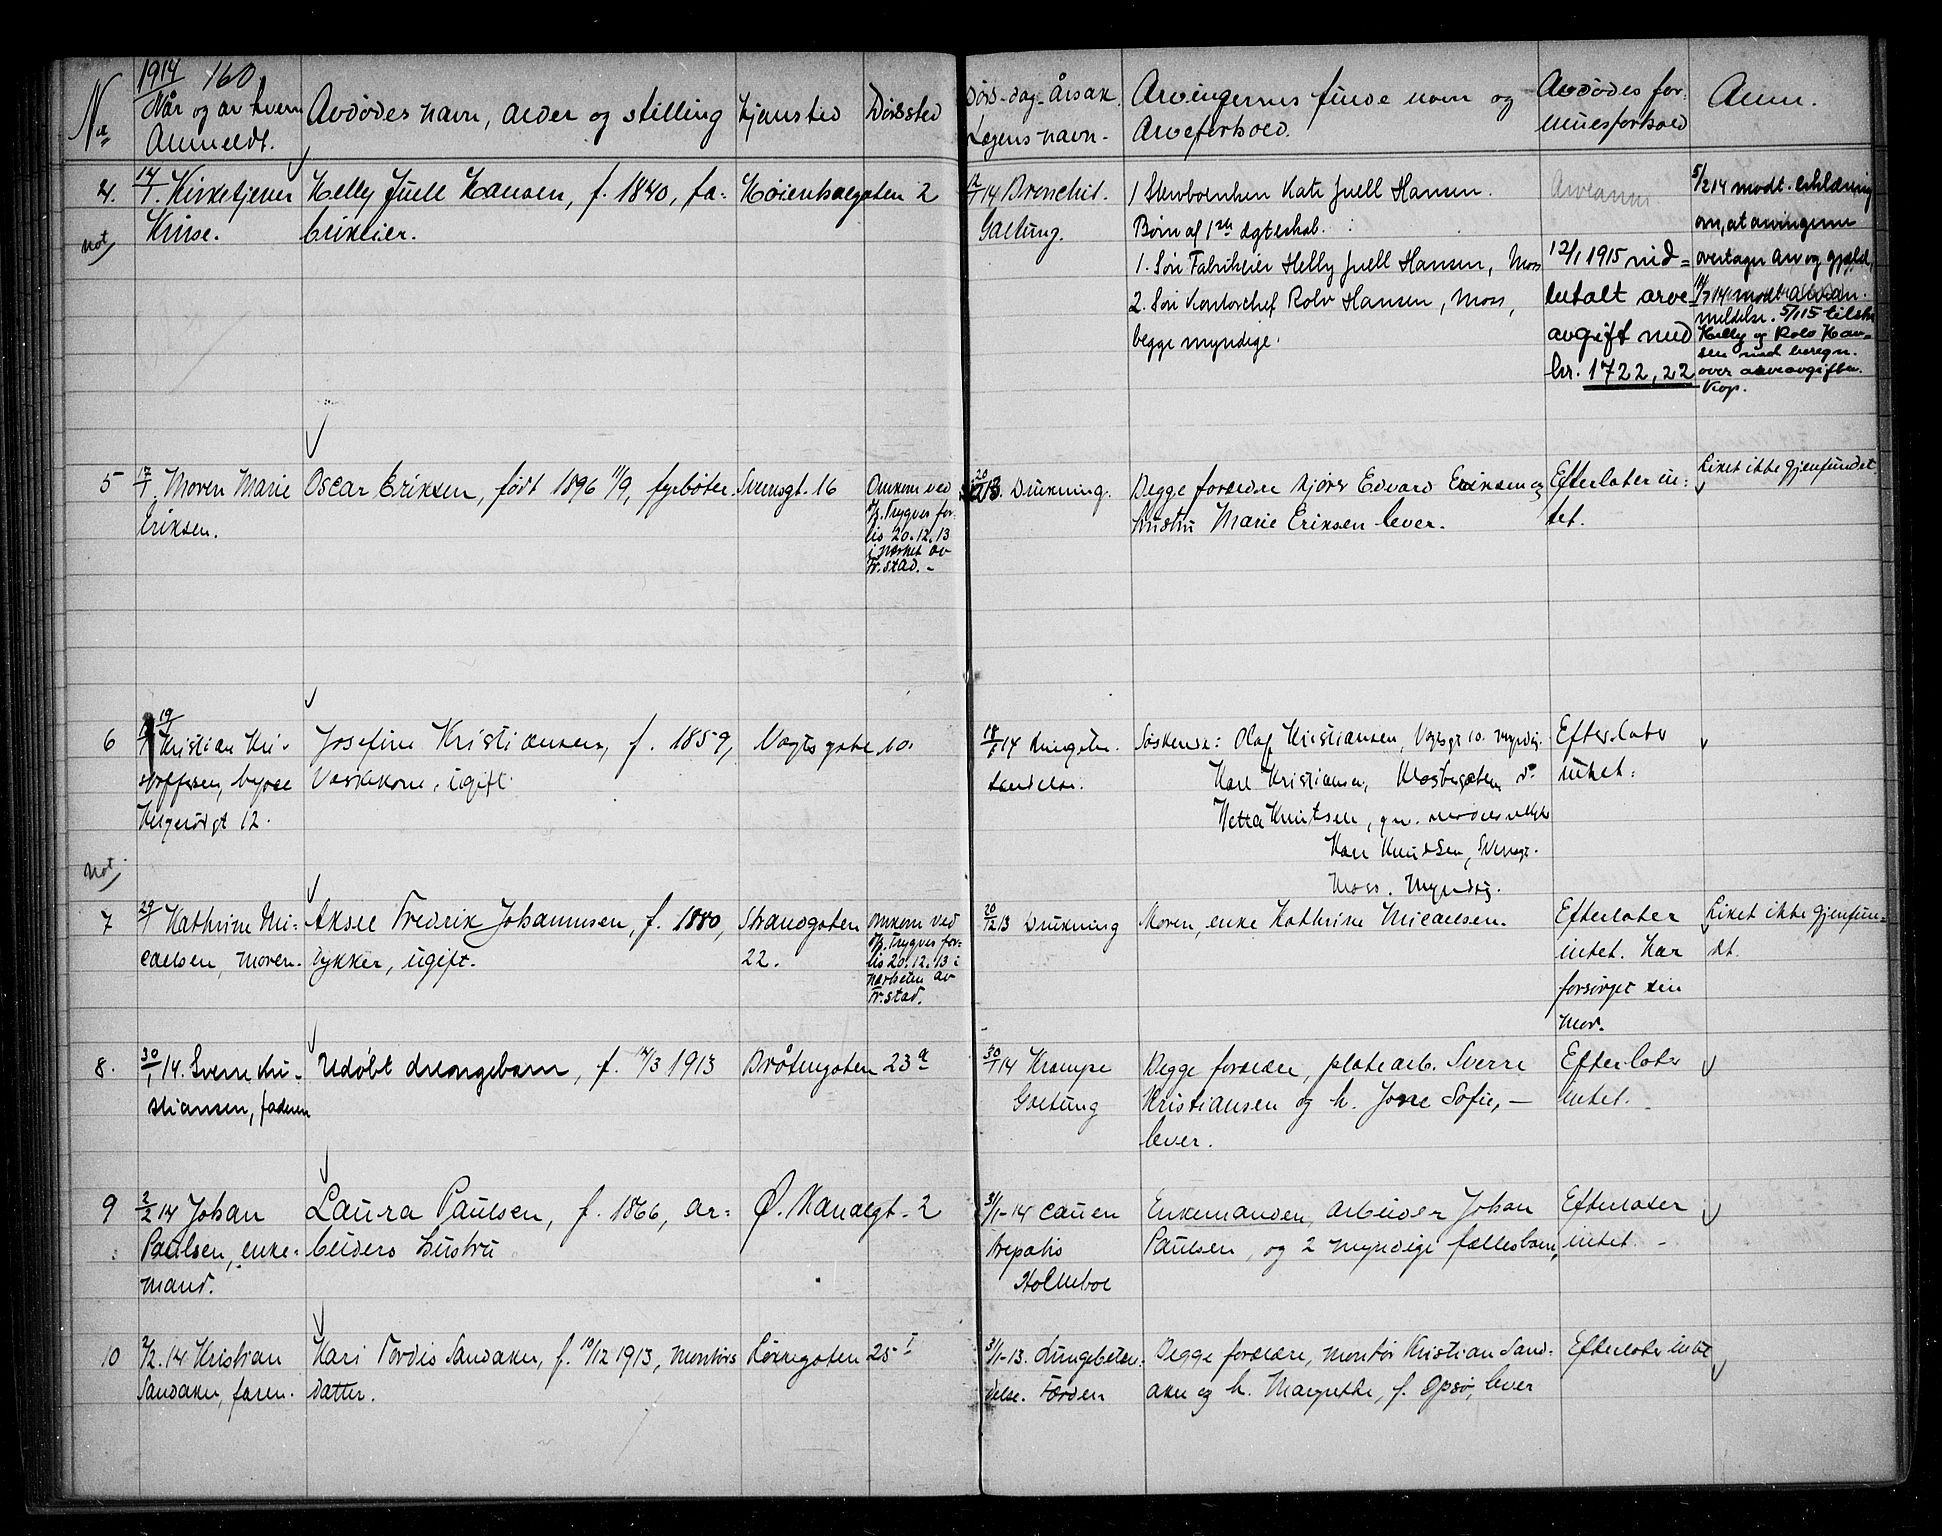 1914 160
No
Når og av hvem
Anmeldt.
Avdødes navn, alder og stilling
Hjemsted
Dødssted
Døds-dag-årsak
Lægens navn-
Arvingernes fulde navn og
Arveforhold.
Avdødes for-
muesforhold
Anm.
4.
not
14/1. Kirketjener
Kruse.
Helly Juell Hansen, f. 1840, fa-
brikeier.
Høienhalgaten 2
12/1 14 Bronchit.
Galtung.
1 Stervboenken Kate Juell Hansen.
Børn af 1ste ægteskab. :
1. Søn Fabrikeier Helly Juell Hansen, Moss
2. Søn Kontorchef Rolv Hansen, Moss,
begge myndige.
Arveanm.
12/1 1915 ind=
betalt arve
avgift med
kr. 1722,22
5/2 14 modt. erklæring
om, at arvingerne
overtager arv og gjæld.
14/7 14 modt. arvean.
meldelse. 5/1 15 tilskr.
Helly og Rolv Han=
sen med beregn.
over arveavgiften.
Kop.
5
17/1. Moren Marie
Eriksen.
Oscar Eriksen, født 1896 11/9, fyrbøter.
Svensgt. 16
Omkom ved
Trygves for-
lis 20.12.13
i nærhet av
Fr.stad. -
20/12 13. Drukning.
Begge forældre Edvard Eriksen og
hustru Marie Eriksen lever.
Efterlater in=
tet.
Liket ikke gjenfundet
6
19/1 Kristian Kri-
stoffersen, byrde
12.
Josefine Kristiansen, f. 1859,
Vaskekone, ugift.
Vogts gate 10.
18/1 14 Lungebe-
tændelse.
Søskende: Olaf Kristiansen, Vogtsgt 10. myndig.
Karl Kristiansen, do
Netta Knutsen, gm.
Karl Knudsen,
Moss. Myndig.
Efterlater
intet.
not
7
29/1 Kathrine Mi-
caelsen, moren.
Aksel Fredrik Johannesen, f. 1880,
Dykker, ugift.
Strandgaten
22.
Omkom ved
Trygves for-
lis 20.12.13 i
nærheten av
Fr.stad.
20/12 13 Drukning
Moren, enke Kathrine Micaelsen.
Efterlater
intet. Har
forsørget sin
mor.
Liket ikke gjenfun-
det.
8.
30/1 14. Sverre Kri-
stiansen, faderen
Udøbt drengebarn, f. 14/3 1913
Bråtengaten 23a
30/1 14 Krampe
Galtung
Begge forældre, platearb. Sverre
Kristiansen og h. Jone Sofie, —
lever.
Efterlater
intet.
9
2/2 14 Johan
Paulsen, enke-
mand.
Laura Paulsen, f. 1866, ar=
beiders hustru
Ø. Kanalgt. 2
31/1-14 cancer
hepatis
Holmboe
Enkemanden, arbeider Johan
Paulsen, og 2 myndige fællesbarn,
Efterlater
intet. -
10
2/2. 14 Kristian
Sandaker, faren.
Kari Tordis Sandaker, f. 10/12 1913, montørs
datter.
Løkkegaten 25 I
31/1-13. Lungebetæn-
delse. Førden
Begge forældre, montør Kristian Sand-
aker og h. Margrethe, f. Opsø, lever
Efterlater intet